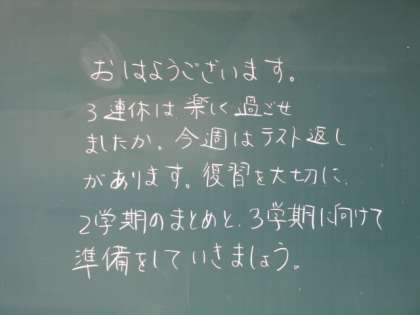 おはようございます。
3連休は楽しく過ごせ
ましたか。今週はテスト返し
があります。復習を大切に、
2学期のまとめと、3学期に向けて
準備をしていきましょう。